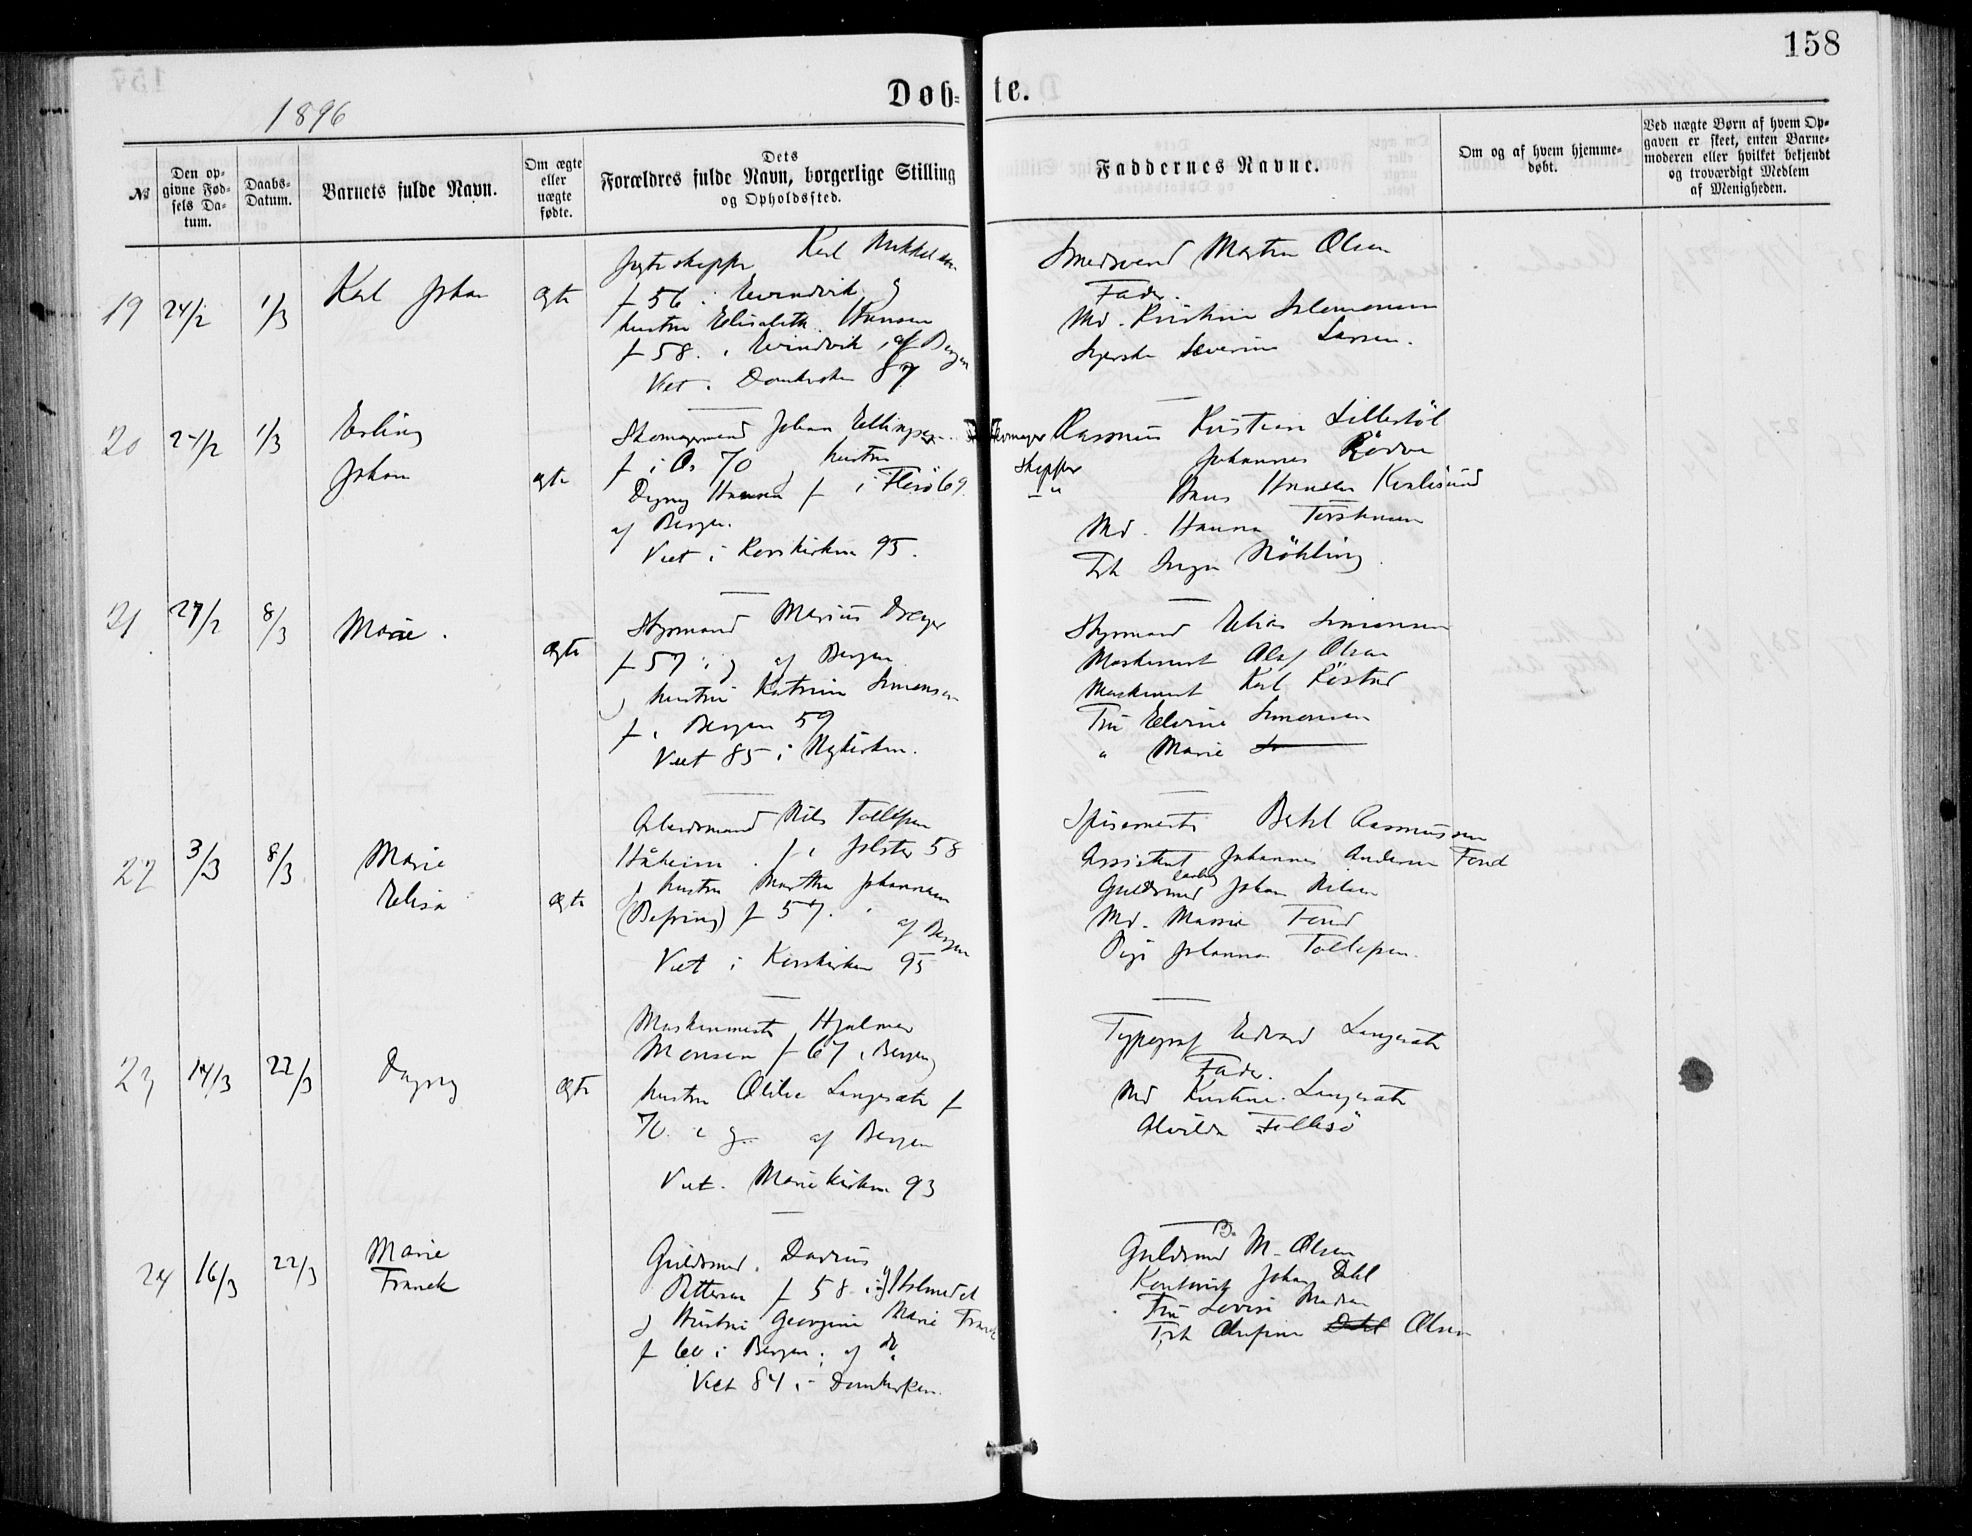 158
Døb-te.
1896
№
Den op-
givne Fød-
sels Da-
tum.
Daabs-
Datum.
Barnets fulde Navn.
Om ægte
eller
uægte
fødte.
Dets
Forældres fulde Navn, borgerlige Stilling
og Opholdssted.
Faddernes Navne.
Om og af hvem hjemme-
døbt.
Ved uægte Børn af hvem Op-
gaven er skeet, enten Barne-
moderen eller hvilket bekjendt
og troværdigt Medlem
af Menigheden.
19
24/2
1/3
Karl Johan
Ægte
Jagteskipper Karl Mikkelsen
f 56 i Evindvik &
hustru Elisabeth Hansen
f 58. i Evindvik, af Bergen
Viet. Domkirken 87
Smedsvend Martin Olsen
Fader.
Md. Kristine Salomonsen
Syerske Severine Larsen.
20
24/2
1/3
Erling
Johan
ægte
Skomagersvend Johan Ellingsen
f i Os 70 & hustru
Dagny Hansen f i Florø 69.
af Bergen.
Viet i Korskirken 95.
Skomager Rasmus Kristian Lillestøl
Skipper Johannes Rødne
Hansen
Md. Hanna
Frk
21
27/2
8/3
Marie.
Ægte
Styrmand Marius Dreyer
f 57 i & af Bergen
& hustru Katrine Simonsen
f. i Bergen 59
Viet 85 i Nykirken.
Styrmand Elias Simonsen
Maskinist Olaf Olsen
Maskinist Karl
Fru Elvine Simonsen
" Marie
22
3/3
8/3
Marie
Elisa
Ægte
Arbeidsmand Nils Tollefsen
Håheim. f i Jølster 58
& hustru Martha Johannesen
(Befring) f 57. af Bergen
Viet i Korskirken 95
Bertel Rasmussen
Assistent Johannes Andersen Fond
Guldsmed Johan Nilsen
Md. Marie Fond
Pige Johanna Tollefsen.
23
14/3
22/3
Dagny
Ægte
Maskinmester Hjalmar
Monsen f 67 i Bergen
hustru Olilie Langesæter f
70. i & af Bergen
Viet. Mariekirken 93
Typograf Edvard Langesæter
Fader.
Md Kristine Langesæter
Alvilda Follesø
24
16/3
22/3
Marie
Franck
Guldsmed. Darius
Pettersen f 58 i Holmedal
& Hustru Georgine Marie Franck
f 60 i Bergen; af do
Viet 84 i Domkirken.
Guldsmed B. M. Olsen
Kontorist Johan Dahl
Fru Lovise Madsen
Frk Olufine Dahl Olsen